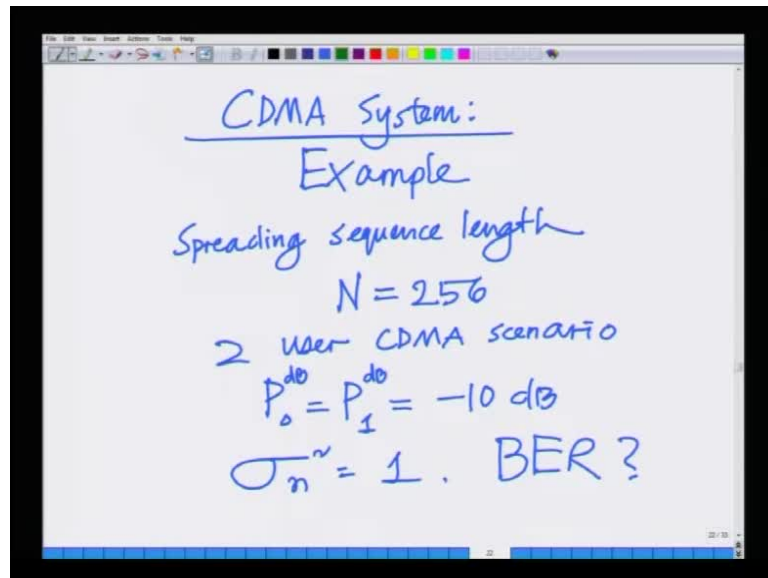 File Edit View Insert Actions Tools Help
CDMA System:
Example
Spreading sequence length
N = 256
2 user CDMA scenario
P₀^dB = P₁^dB = -10 dB
σₙ² = 1. BER?
22/33
22